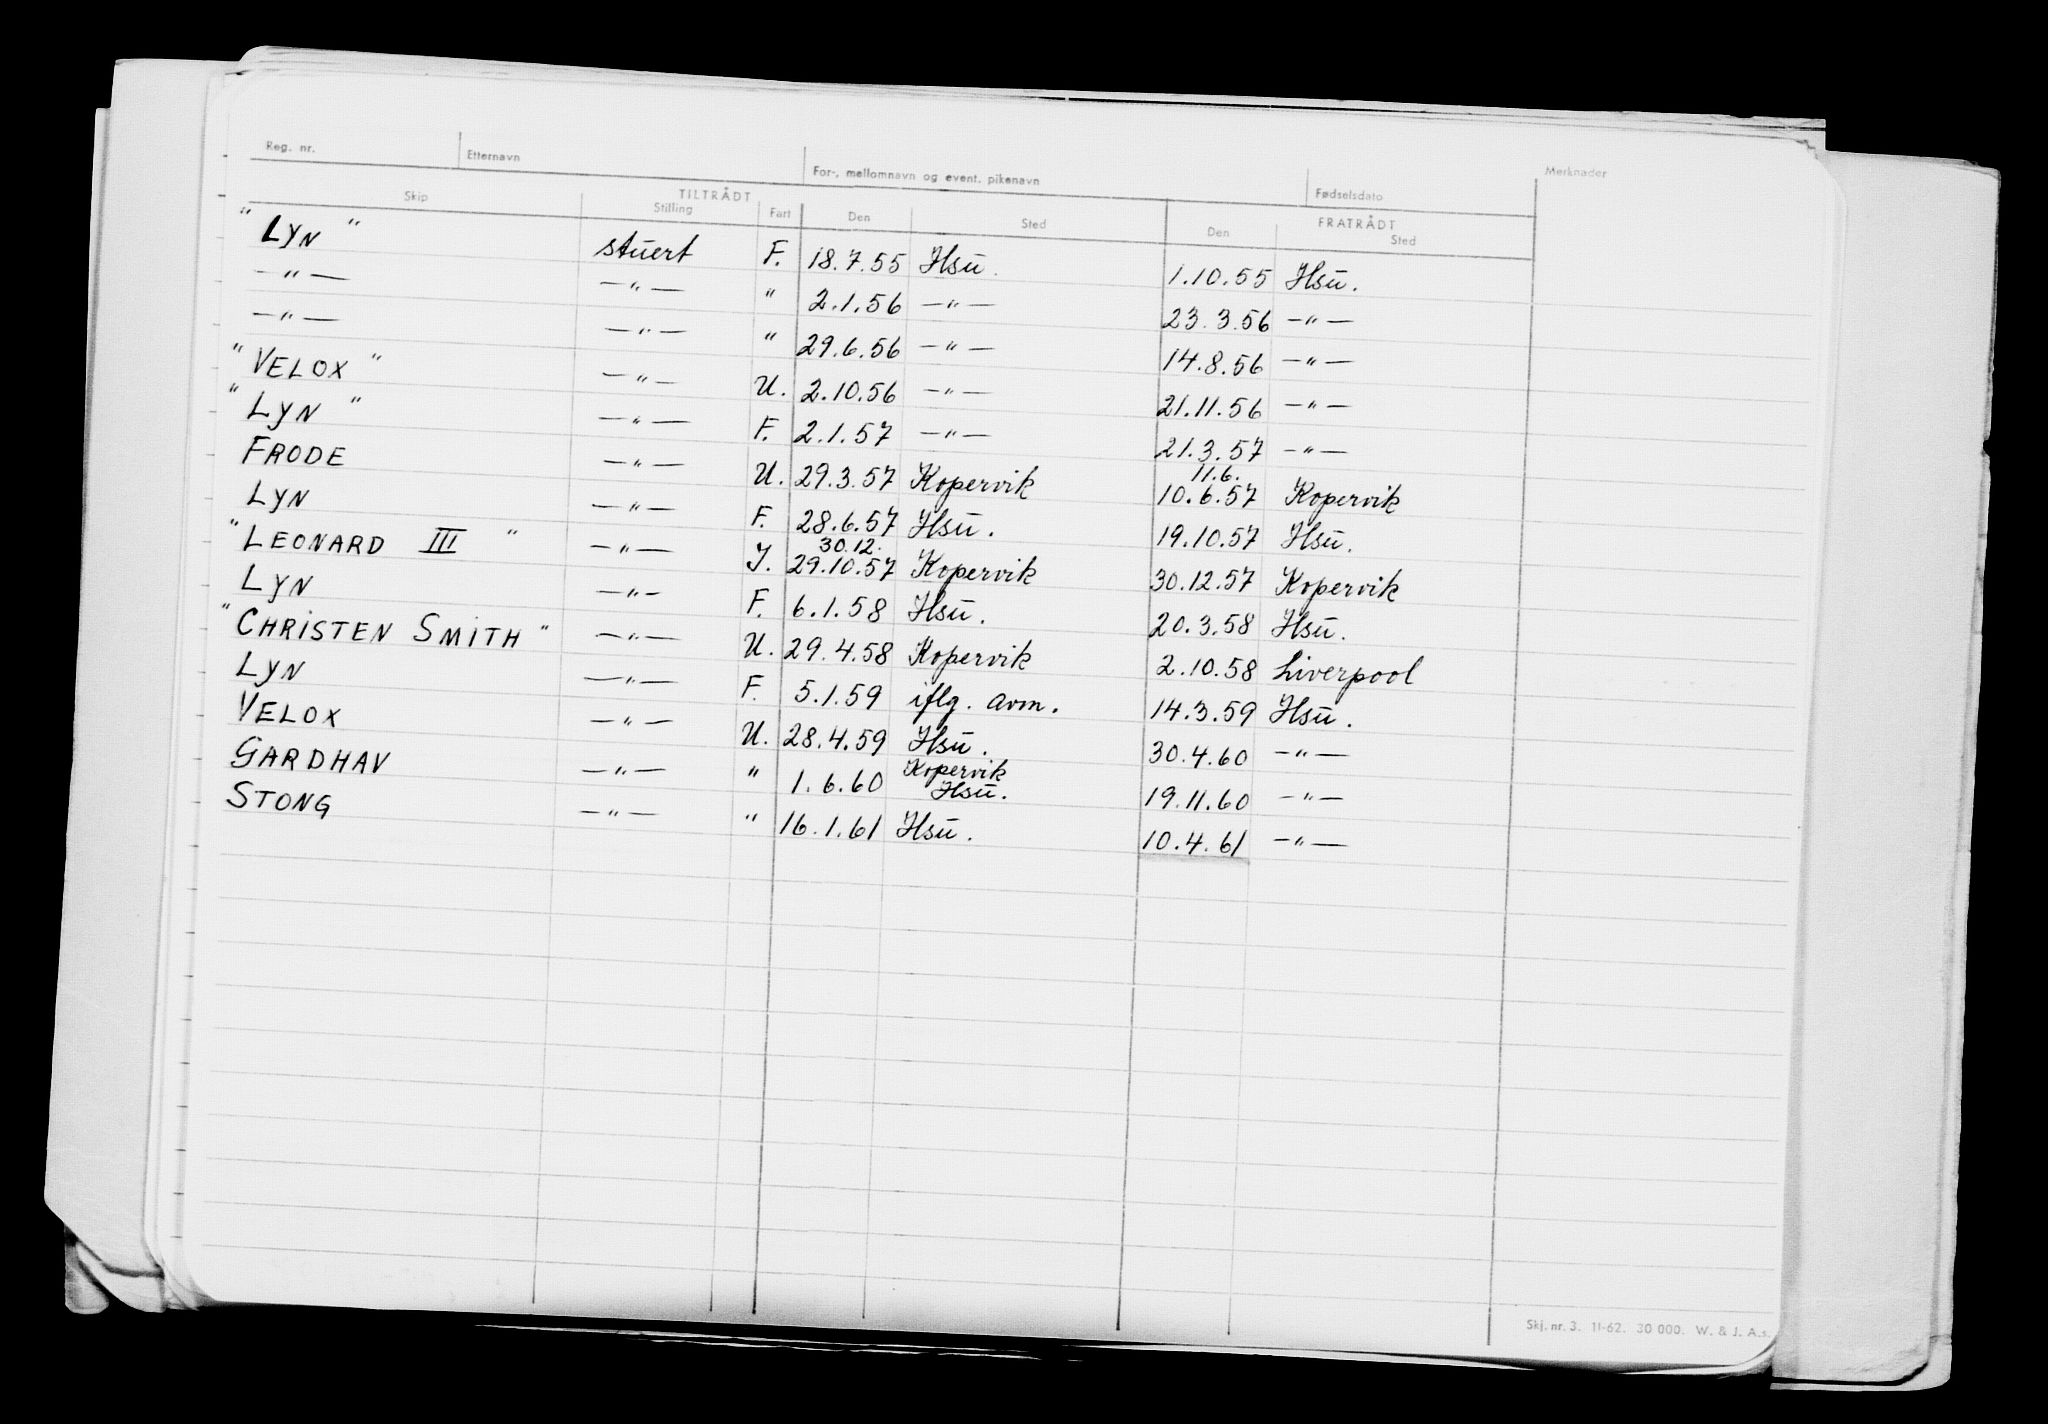 Reg. nr. Etternavn For-, mellomnavn og event. pikenavn Fødselsdato Merknader
TILTRÅDT FRATRÅDT
Skip Stilling Fart Den Sted Den Sted
"LYN" stuert F. 18.7.55 Hsu. 1.10.55 Hsu.
—"— —"— " 2.1.56 —"— 23.3.56 —"—
—"— —"— " 29.6.56 —"— 14.8.56 —"—
"VELOX" —"— U. 2.10.56 —"— 21.11.56 —"—
"LYN" —"— F. 2.1.57 —"— 21.3.57 —"—
11.6.
FRODE —"— U. 29.3.57 Kopervik 10.6.57 Kopervik
LYN —"— F. 28.6.57 Hsu. 19.10.57 Hsu.
30.12.
"LEONARD III" —"— I. 29.10.57 Kopervik 30.12.57 Kopervik
LYN —"— F. 6.1.58 Hsu. 20.3.58 Hsu.
"CHRISTEN SMITH" —"— U. 29.4.58 Kopervik 2.10.58 Liverpool
LYN —"— F. 5.1.59 iflg. avm. 14.3.59 Hsu.
VELOX —"— U. 28.4.59 Hsu. 30.4.60 —"—
Kopervik
GARDHAV —"— " 1.6.60 Hsu. 19.11.60 —"—
STONG —"— " 16.1.61 Hsu. 10.4.61 —"—
Skj. nr. 3. 11-62. 30 000. W. & J. A.s.